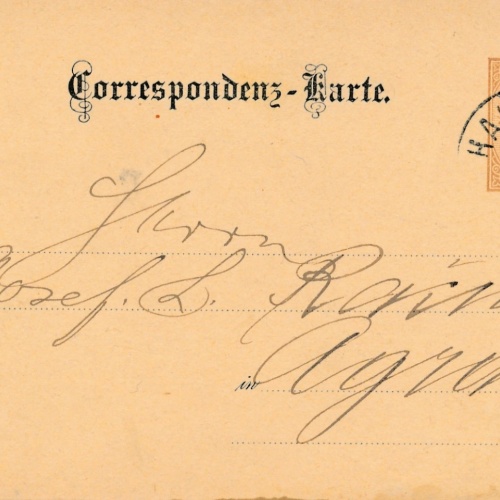 Correspondenz-Karte.
HA
Herrn
Josef. L. Rain
in Agra